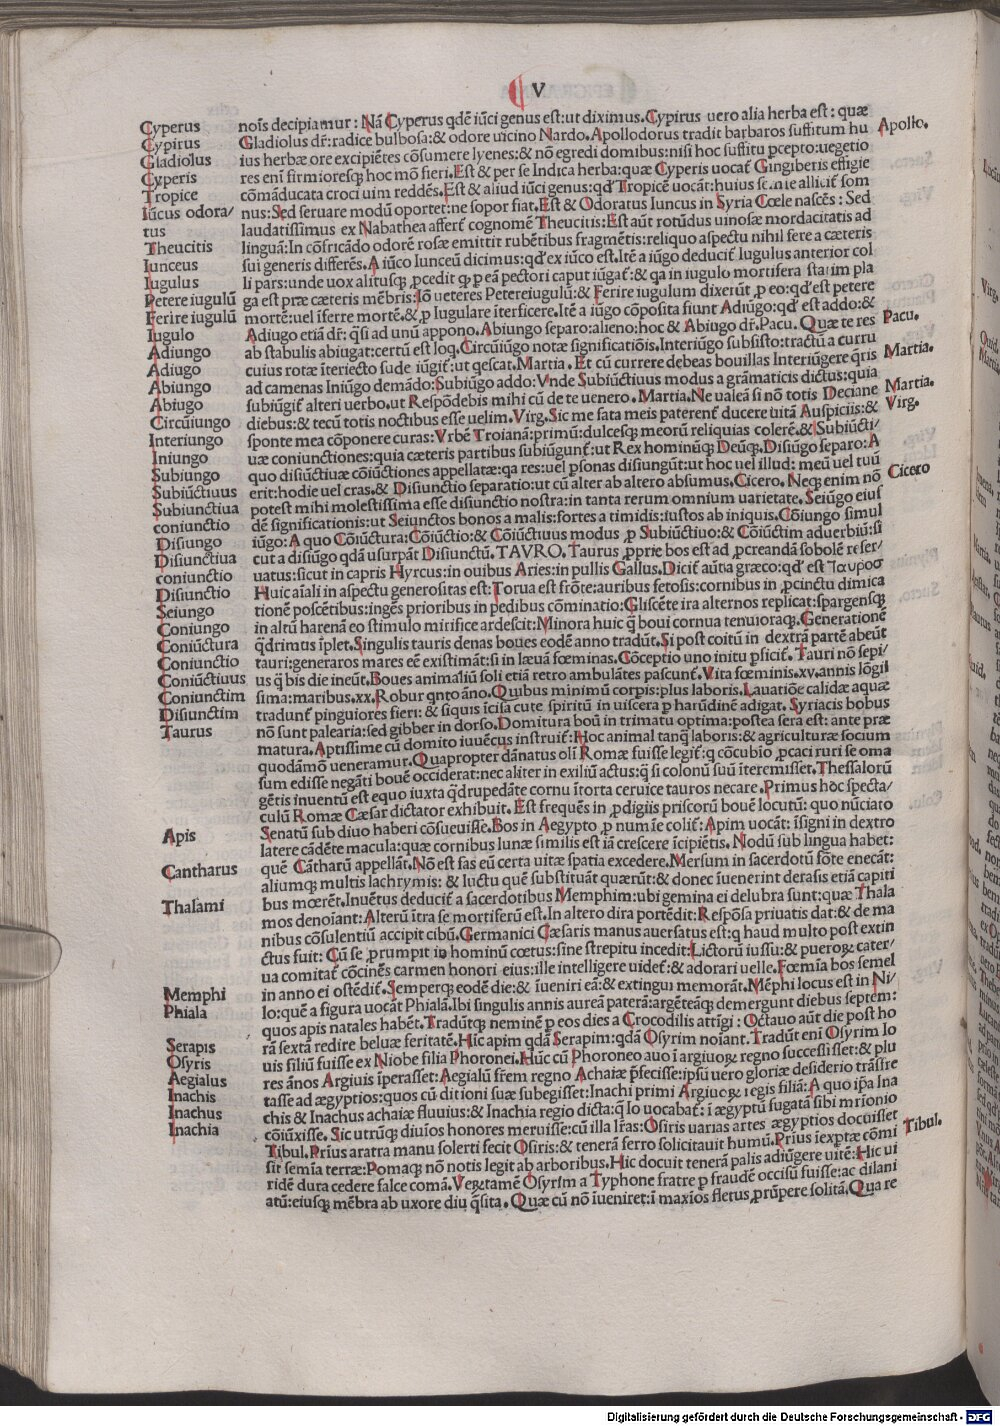 V
Cyperus noīs decipiamur: Nā Cyperus qdē iūci genus est: ut diximus. Cypirus uero alia herba est: quæ
Cypirus Gladiolus dr̄: radice bulbosa: & odore uicino Nardo. Apollodorus tradit barbaros suffitum hu Apollo.
Gladiolus ius herbæ ore excipiētes cōsumere lyenes: & nō egredi domibus: nisi hoc suffitu pcepto: uegetio
Cyperis res enī firmioresq; hoc mō fieri. Est & per se Indica herba: quæ Cyperis uocat̄ Gingiberis effigie
Tropice cōmāducata croci uim reddēs. Est & aliud iūci genus: qd̄ Tropicē uocāt: huius semie allicit̄ som
Iūcus odora/ nus: Sed seruare modū oportet: ne sopor fiat. Est & Odoratus Iuncus in Syria Cœle nascēs: Sed
tus laudatissimus ex Nabathea affert̄ cognomē Theucitis: Est aūt rotūdus uinosæ mordacitatis ad
Theucitis linguā: In cōfricādo odorē rosæ emittit rubētibus fragmētis: reliquo aspectu nihil fere a cæteris
Iunceus sui generis differēs. A iūco Iunceū dicimus: qd̄ ex iūco est. Itē a iūgo deducit̄ Iugulus anterior col
Iugulus li pars: unde uox alitusq; pcedit q p eā pectori caput iūgat̄: & qa in iugulo mortifera statim pla
Petere iugulū ga est præ cæteris mēbris: Iō ueteres Petereiugulū: & Ferire iugulum dixerūt p eo: qd̄ est petere
Ferire iugulū mortē: uel īferre mortē: & p Iugulare īterficere. Itē a iūgo cōposita siunt Adiūgo: qd̄ est addo: &
Iugulo Adiugo etiā dr̄: q̄si ad unū appono. Abiungo separo: alieno: hoc & Abiugo dr̄. Pacu. Quæ te res Pacu.
Adiungo ab stabulis abiugat: certū est loq. Circūiūgo notæ significatiōis. Interiūgo subsisto: tractū a curru
Adiugo cuius rotæ īteriecto sude iūgit̄: ut qescat. Martia. Et cū currere debeas bouillas Interiūgere q̄ris Martia.
Abiungo ad camenas Iniūgo demādo: Subiūgo addo: Vnde Subiūctiuus modus a grāmaticis dictus: quia
Abiugo subiūgit̄ alteri uerbo. ut Respōdebis mihi cū de te uenero. Martia. Ne ualeā si nō totis Deciane Martia.
Circūiungo diebus: & tecū totis noctibus esse uelim. Virg. Sic me fata meis paterent̄ ducere uitā Auspiciis: & Virg.
Interiungo sponte mea cōponere curas: Vrbē Troianā: primū: dulcesq; meorū reliquias colerē. & Subiūcti/
Iniungo uæ coniunctiones: quia cæteris partibus subiūgunt̄: ut Rex hominūq; Deūq;. Disiūgo separo: A
Subiungo quo disiūctiuæ cōiūctiones appellatæ: qa res: uel psonas disiungūt: ut hoc uel illud: meū uel tuū
Subiūctiuus erit: hodie uel cras. & Disiunctio separatio: ut cū alter ab altero absumus. Cicero. Neq; enim nō Cicero
Subiunctiua potest mihi molestissima esse disiunctio nostra: in tanta rerum omnium uarietate. Seiūgo eius
coniunctio dē significationis: ut Seiunctos bonos a malis: fortes a timidis: iustos ab iniquis. Cōiungo simul
Disiungo iūgo: A quo Cōiūctura: Cōiūctio: & Cōiūctiuus modus p Subiūctiuo: & Cōiūctim aduerbiū: si
Disiunctiua cut a disiūgo qdā usurpāt Disiunctū. TAVRO. Taurus pprie bos est ad pcreandā sobolē reser/
coniunctio uatus: sicut in capris Hyrcus: in ouibus Aries: in pullis Gallus. Dicit̄ aūtīa græco: qd̄ est Ταυροσ
Disiunctio Huic aīali in aspectu generositas est: Torua est frōte: auribus setosis: cornibus in pcinctu dimica
Seiungo tionē poscētibus: ingēs prioribus in pedibus cōminatio: Gliscēte ira alternos replicat: spargensq;
Coniungo in altū harenā eo stimulo mirifice ardescit: Minora huic q̄ boui cornua tenuioraq;. Generationē
Coniūctura q̄drimus īplet. Singulis tauris denas boues eodē anno tradūt. Si post coitū in dextrā partē abeūt
Coniunctio tauri: generaros mares eē existimāt: si in læuā fœminas. Cōceptio uno initu pficit̄. Tauri nō sepi/
Coniūctiuus us q̄ bis die ineūt. Boues animaliū soli etiā retro ambulātes pascunt̄. Vita fœminis. xv. annis lōgil
Coniunctim sima: maribus. xx. Robur qnto āno. Quibus minimū corpis: plus laboris. Lauatiōe calidæ aquæ
Disiunctim tradunt̄ pinguiores fieri: & siquis īcisa cute spiritū in uiscera p harūdinē adigat. Syriacis bobus
Taurus nō sunt palearia: sed gibber in dorso. Domitura boū in trimatu optima: postea sera est: ante præ
matura. Aptissime cū domito iuuēcus instruit̄: Hoc animal tanq laboris: & agriculturæ socium
quodāmō ueneramur. Quapropter dānatus olī Romæ fuisse legit̄: q cōcubio pcaci ruri se oma
sum edisse negāti bouē occiderat: nec aliter in exiliū actus: q̄ si colonū suū īteremisset. Thessalorū
gētis inuentū est equo iuxta q̄drupedāte cornu ītorta ceruice tauros necare. Primus hoc specta/
culū Romæ Cæsar dictator exhibuit. Est frequēs in pdigiis priscorū bouē locutū: quo nūciato
Apis Senatū sub diuo haberi cōsueuisse. Bos in Aegypto p numīe colit̄: Apim uocāt: īsigni in dextro
latere cādēte macula: quæ cornibus lunæ similis est iā crescere īcipiētis. Nodū sub lingua habet:
Cantharus quē Cātharū appellāt. Nō est fas eū certa uitæ spatia excedere. Mersum in sacerdotū fōte enecāt:
aliumq; multis lachrymis: & luctu quē substituāt quærūt: & donec iuenerint derasis etiā capiti
Thalami bus mœrēt. Inuētus deducit̄ a sacerdotibus Memphim: ubi gemina ei delubra sunt: quæ Thala
mos denoīant: Alterū ītra se mortiferū est. In altero dira portēdit: Respōsa priuatis dat: & de ma
nibus cōsulentiū accipit cibū. Germanici Cæsaris manus auersatus est: q haud multo post extin
ctus fuit: Cū se prumpit in hominū cœtus: sine strepitu incedit: Lictorū iussu: & pueroꝝ cater/
ua comitat̄ cōcinēs carmen honori eius: ille intelligere uidet̄: & adorari uelle. Fœmīa bos semel
Memphi in anno ei ostēdit̄. Semperq; eodē die: & īueniri eā: & extingui memorāt. Mēphi locus est in Ni/
Phiala lo: quē a figura uocāt Phialā. Ibi singulis annis aureā paterā: argēteāq; demergunt diebus septem:
quos apis natales habēt. Tradūtq; neminē p eos dies a Crocodilis attrīgi: Octauo aūt die post ho
Serapis rā sextā redire beluæ feritatē. Hic apim qdā Serapim: qdā Osyrim noīant. Tradūt enī Osyrim Io
Osyris uis filiū fuisse ex Niobe filia Phoronei. Hūc cū Phoroneo auo ī argiuoꝝ regno successisset: & plu
Aegialus res ānos Argiuis īperasset: Aegialū fr̄em regno Achaiæ pfecisse: ipsū uero gloriæ desiderio trāsfre
Inachis tasse ad ægyptios: quos cū ditioni suæ subegisset: Inachi primi Argiuoꝝ regis filiā: A quo ip̄a Ina
Inachus chis & Inachus achaiæ fluuius: & Inachia regio dicta: q̄ Io uocabat̄: ī ægyptū fugatā sibi mr̄ionio
Inachia cōiūxisse. Sic utrūq; diuīos honores meruisse: cū illa lr̄as: Osiris uarias artes ægyptios docuisset
Tibul. Prius aratra manu solerti fecit Osiris: & tenerā ferro solicitauit humū. Prius īexptæ cōmi Tibul.
sit semīa terræ: Pomaq; nō notis legit ab arboribus. Hic docuit tenerā palis adiūgere uitē: Hic ui
ridē dura cedere falce comā. Vegetamē Osyrim a Typhone fratre p fraudē occisū fuisse: ac dilani
atū: eiusq; mēbra ab uxore diu q̄sita. Quæ cū nō īueniret: ī maxīos fletus prūpere solitā. Qua re
Digitalisierung gefördert durch die Deutsche Forschungsgemeinschaft - DFG